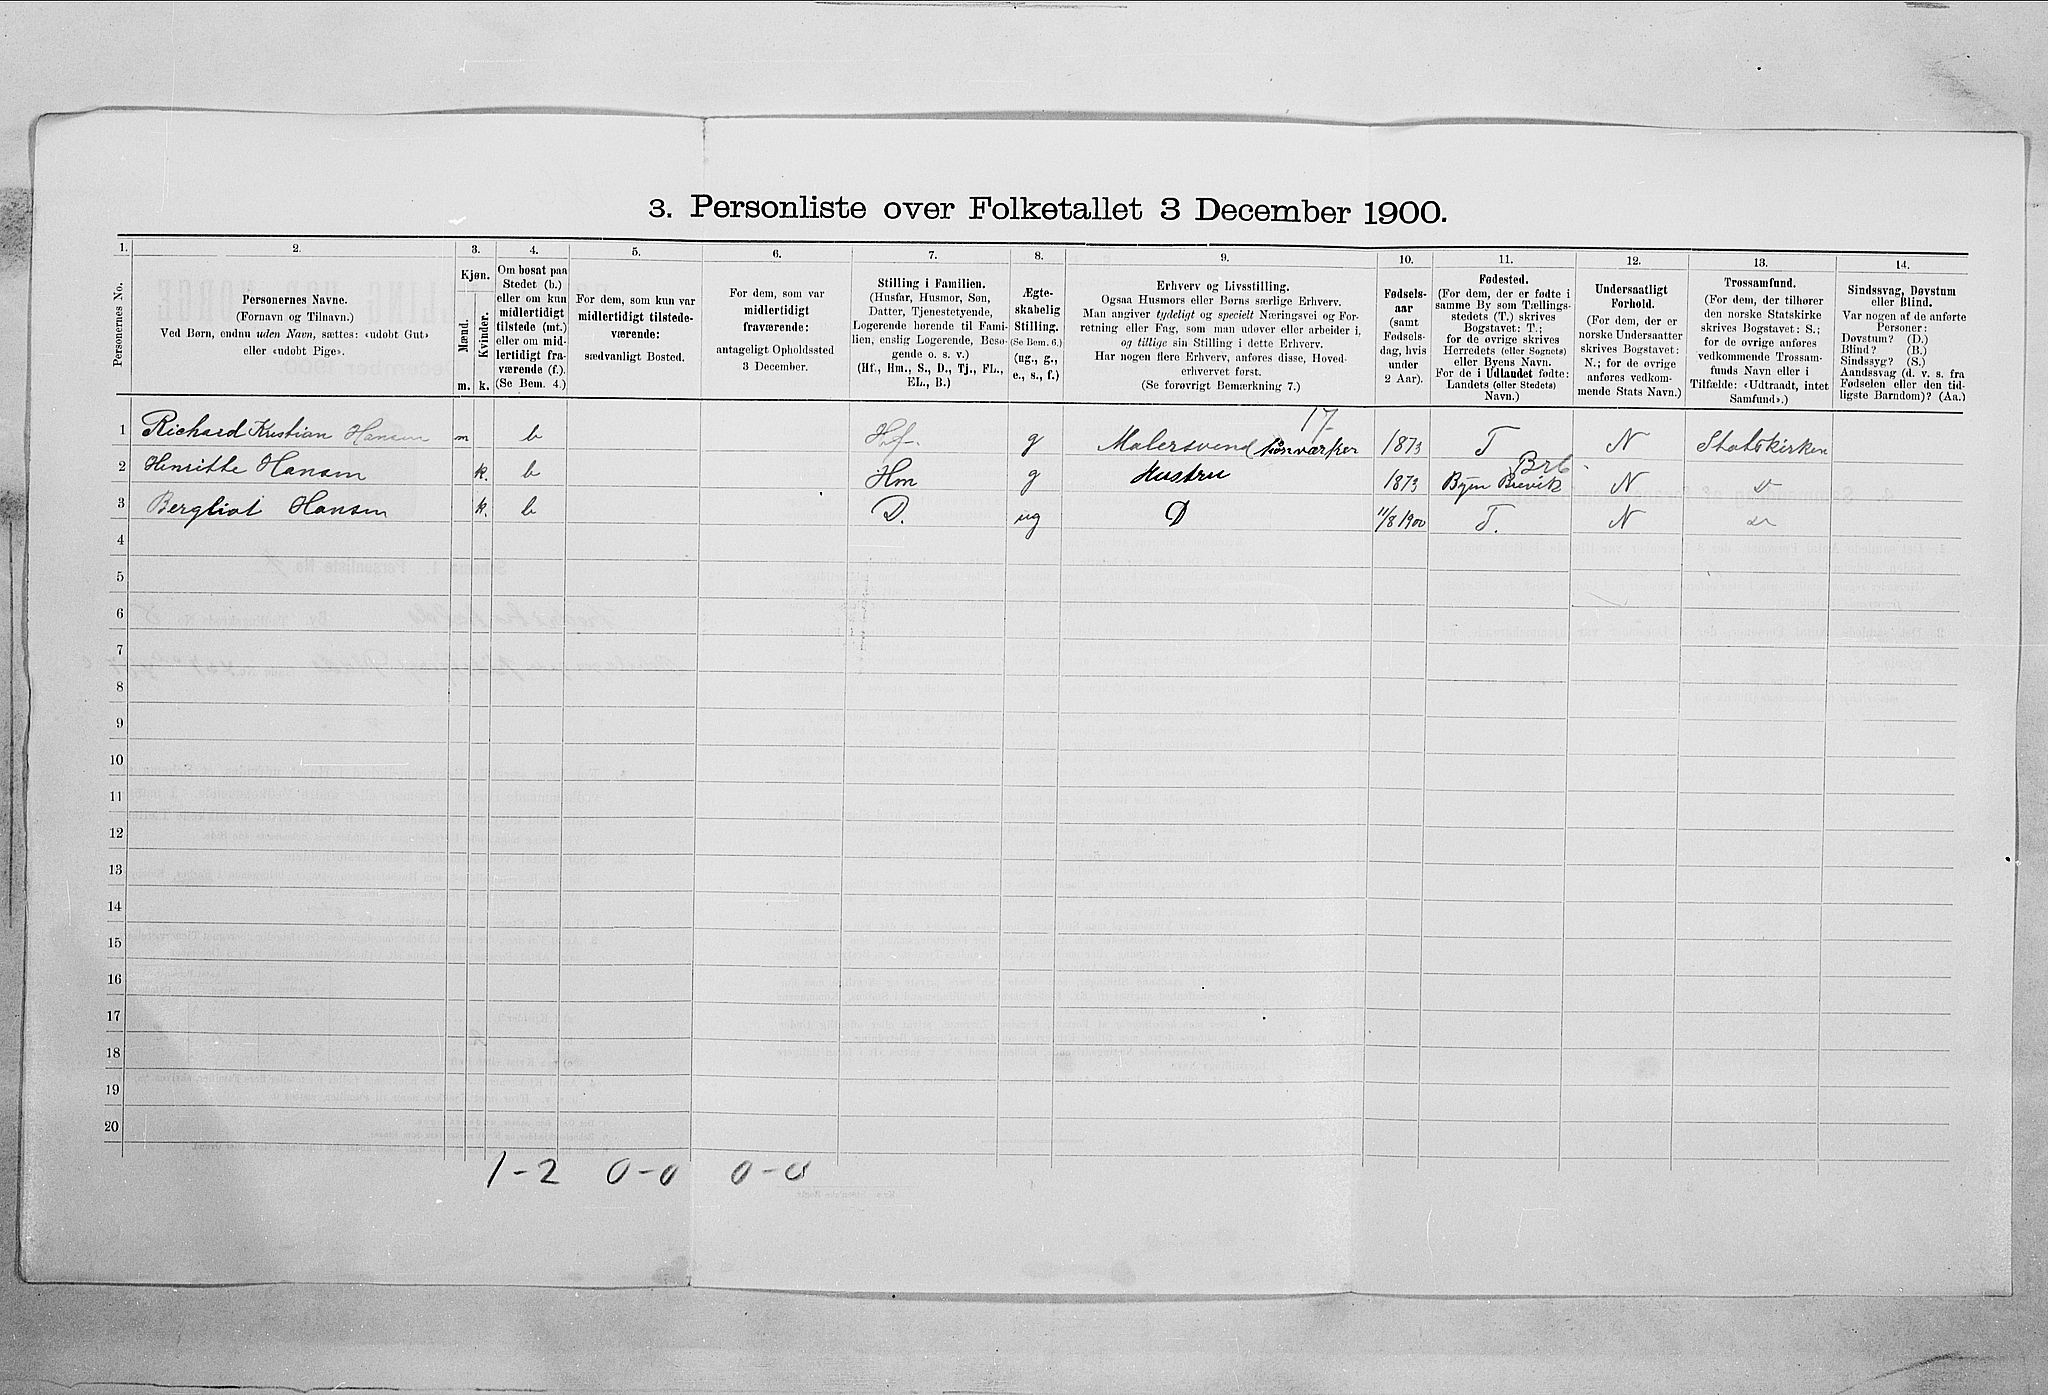 3. Personliste over Folketallet 3 December 1900.
1.
2.
3.
4.
5.
6.
7.
8.
9.
10.
11.
12.
13.
14.
Personernes No.
Personernes Navne.
(Fornavn og Tilnavn.)
Ved Børn, endnu uden Navn, sættes: «udøbt Gut»
eller «udøbt Pige».
Kjøn.
Mænd.
Kvinder.
m.
k.
Om bosat paa
Stedet (b.)
eller om kun
midlertidigt
tilstede (mt.)
eller om mid-
lertidigt fra-
værende (f.).
(Se Bem. 4.)
For dem, som kun var
midlertidigt tilstede-
værende:
sædvanligt Bosted.
For dem, som var
midlertidigt
fraværende:
antageligt Opholdssted
3 December.
Stilling i Familien.
(Husfar, Husmor, Søn,
Datter, Tjenestetyende,
Logerende hørende til Fami-
lien, enslig Logerende, Besø-
gende o. s. v.)
(Hf., Hm., S., D., Tj., FL.,
EL., B.)
Ægte-
skabelig
Stilling.
(Se Bem. 6.)
(ug., g.,
e., s., f.)
Erhverv og Livsstilling.
Ogsaa Husmors eller Børns særlige Erhverv.
Man angiver tydeligt og specielt Næringsvei og For-
retning eller Fag, som man udøver eller arbeider i,
og tillige sin Stilling i dette Erhverv.
Har nogen flere Erhverv, anføres disse, Hoved-
erhvervet først.
(Se forøvrigt Bemærkning 7.)
Fødsels-
aar
(samt
Fødsels-
dag, hvis
under
2 Aar).
Fødested.
(For dem, der er fødte i
samme By som Tællings-
stedets (T.) skrives
Bogstavet: T.;
for de øvrige skrives
Herredets (eller Sognets)
eller Byens Navn.
For de i Udlandet fødte:
Landets (eller Stedets)
Navn.)
Undersaatligt
Forhold.
(For dem, der er
norske Undersaatter
skrives Bogstavet:
N.; for de øvrige
anføres vedkom-
mende Stats Navn.)
Trossamfund.
(For dem, der tilhører
den norske Statskirke
skrives Bogstavet: S.;
for de øvrige anføres
vedkommende Trossam-
funds Navn eller i
Tilfælde: «Udtraadt, intet
Samfund».)
Sindssvag, Døvstum
eller Blind.
Var nogen af de anførte
Personer:
Døvstum? (D.)
Blind? (B.)
Sindssyg? (S.)
Aandssvag (d. v. s. fra
Fødselen eller den tid-
ligste Barndom)? (Aa.)
17
1 Richard Kristian Hansen m b Hf. g Malersvend 1873 T N Statskirken
Brb.
2 Henritte Hansen k. b Hm g Hustru 1873 Byen Brevik N
3 Bergliot Hansen k. b D. ug D 11/8 1900 T. N
4
5
6
7
8
9
10
11
12
13
14
15
16
17
18
19
20
1-2 0-0 0-0